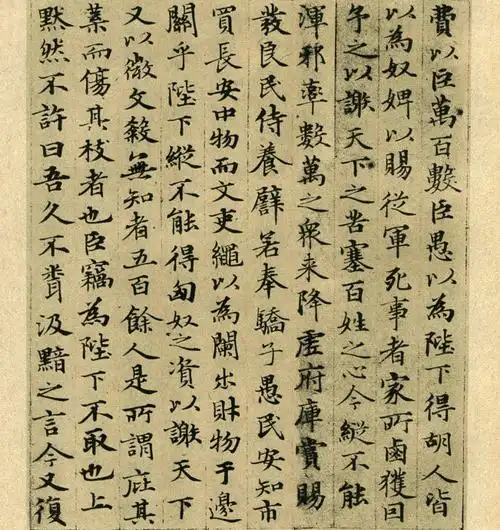 費以臣萬百數臣愚以為陛下得胡人皆
以為奴婢以賜從軍死事者家所鹵獲回
予之以謝天下之苦塞百姓之心今縱不能
渾邪率數萬之衆来降虛府庫賞賜
發良民侍養譬若奉驕子愚民安知市
買長安中物而文吏繩以為闌出財物于邊
關乎陛下縱不能得匈奴之資以謝天下
又以微文殺無知者五百餘人是所謂庇其
葉而傷其枝者也臣竊為陛下不取也上
默然不許曰吾久不聞汲黯之言今又復